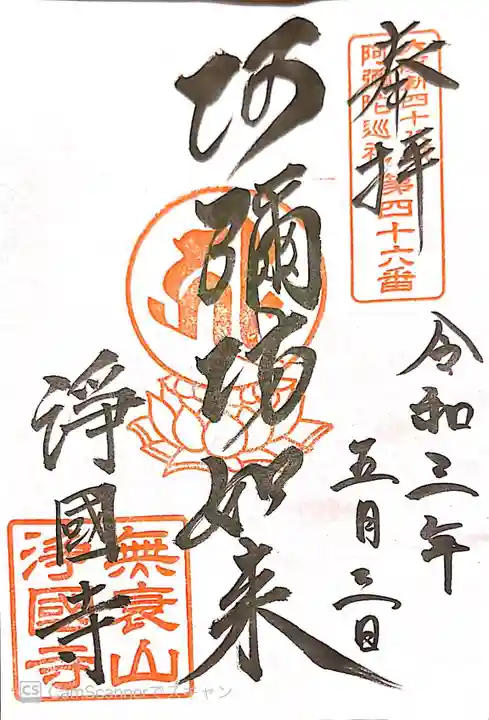 奉拝
阿彌陀巡礼第四十六番
令和三年
五月三日
阿彌陀如来
淨國寺
無衰山
淨國寺
CS CamScannerでスキャン